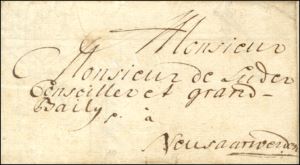 Monsieur
Monsieur de Luder
Conseiller et grand-
Baily
p. à
Neusaarwerden